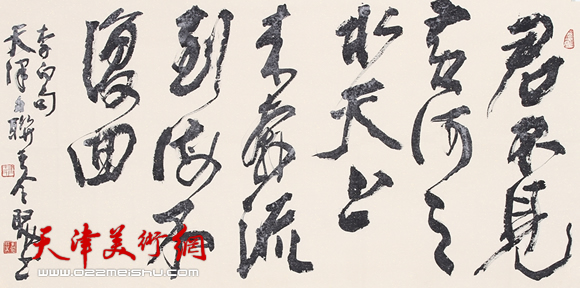 君不見
黄河之
水天上
来奔流
到海不
復回
李白句
天津
天津美術網
www.022meishu.com